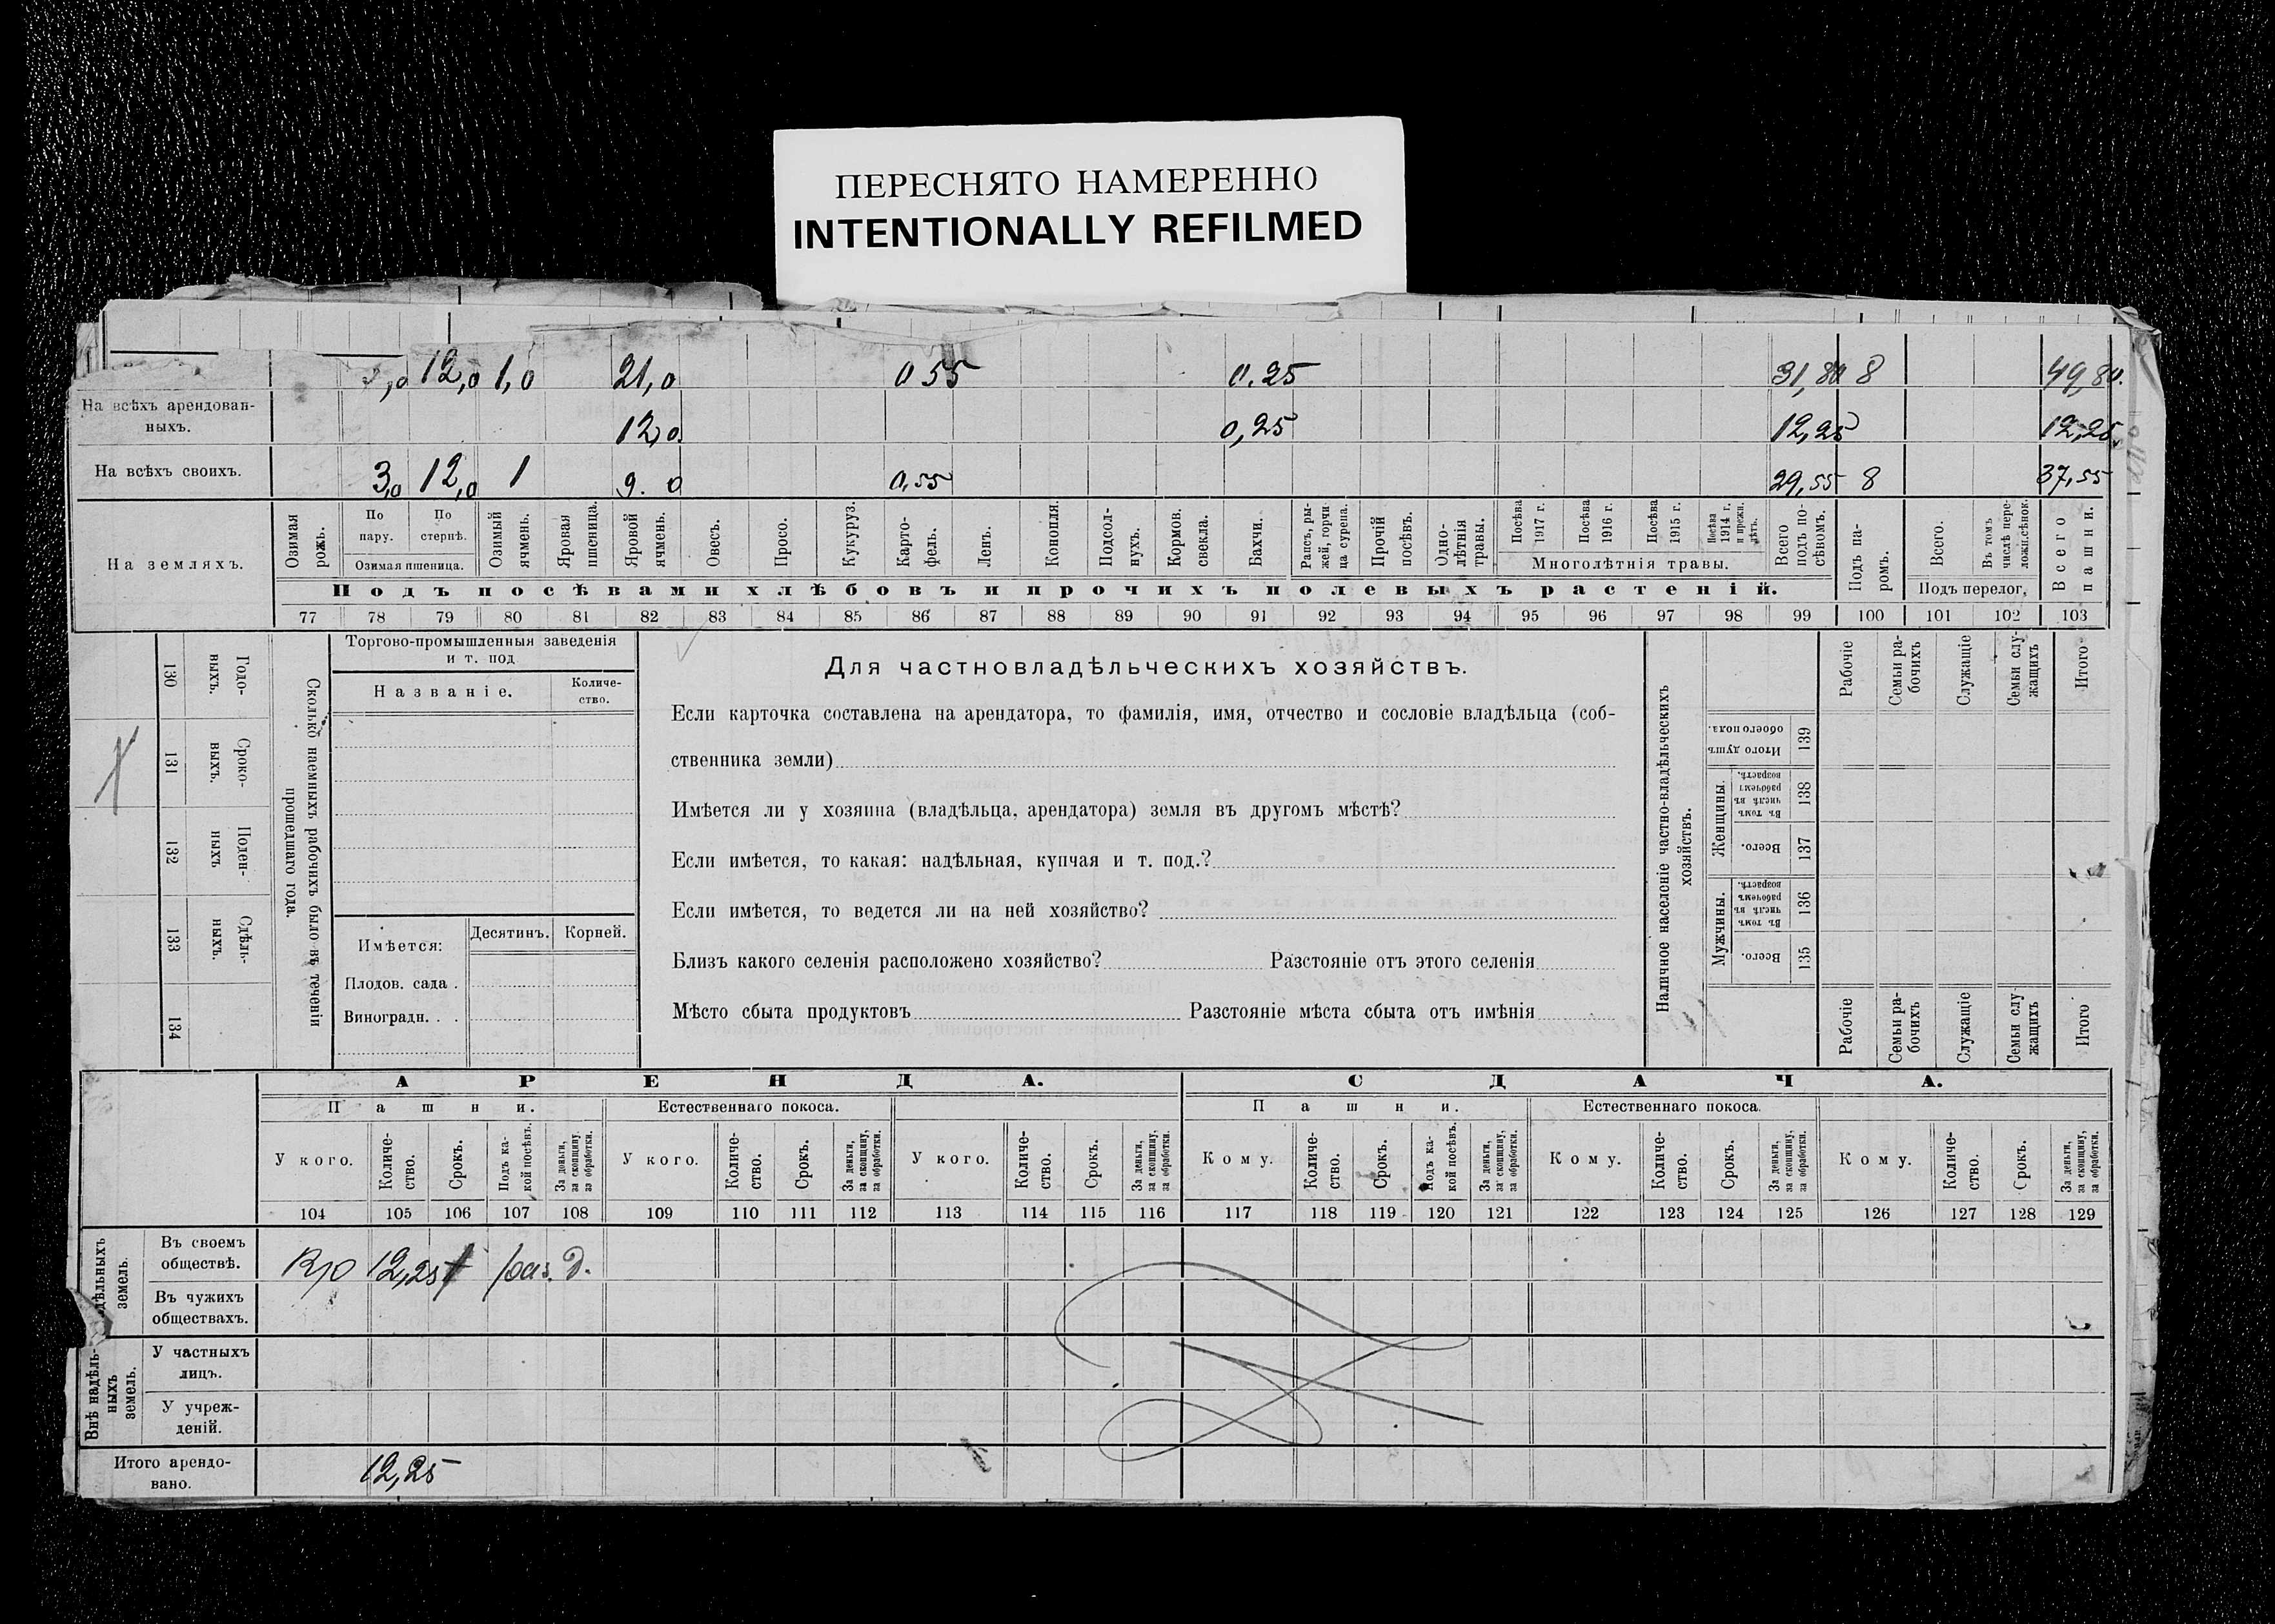 ПЕРЕСНЯТО НАМЕРЕННО
INTENTIONALLY REFILMED
12,0 1,0 21,0 0 55 0.25 8 49,80.
На всѣхъ арендован-
ныхъ.
12,0. 0,25 12,25 12,25
На всѣхъ своихъ. 3,0 12,0 1 9. 0 0,55 29,55 8 37,55
На земляхъ.
Озимая рожь.
По пару.
По стернѣ.
Озимая пшеница.
Озимый ячмень.
Яровая пшеница.
Яровой ячмень.
Овесъ.
Просо.
Кукуруз.
Карто-фель.
Ленъ.
Конопля.
Подсол-нухъ.
Кормов. свекла.
Бахчи.
Рапсъ, ры-жей, горчи-ца сурепа.
Прочій посѣвъ.
Одно-лѣтнія травы.
Посѣва 1917 г.
Посѣва 1916 г.
Посѣва 1915 г.
Посѣва 1914 г. и прежн. лѣтъ.
Многолѣтнія травы.
Всего подъ по-сѣвомъ.
Подъ па-ромъ.
Всего.
Въ томъ числѣ пере-ложн.сѣнок.
Подъ перелог,
Всего пашни.
Подъ посѣвами хлѣбовъ и прочихъ полевыхъ растеній.
77 78 79 80 81 82 83 84 85 86 87 88 89 90 91 92 93 94 95 96 97 98 99 100 101 102 103
Годо-ныхъ. 130
Сроко-выхъ. 131
Поден-ныхъ 132
Сдѣль-ныхъ. 133
134
Сколько наемныхъ рабочихъ было въ теченіи прошедшаго года.
Торгово-промышленныя заведенія
и т. под
Названіе.
Количе-ство.
Имѣется:
Десятинъ. Корней.
Плодов. сада .
Виноградн. . .
Для частновладѣльческихъ хозяйствъ.
Если карточка составлена на арендатора, то фамилія, имя, отчество и сословіе владѣльца (соб-
ственника земли)
Имѣется ли у хозяина (владѣльца, арендатора) земля въ другомъ мѣстѣ?
Если имѣется, то какая: надѣльная, купчая и т. под.?
Если имѣется, то ведется ли на ней хозяйство?
Близъ какого селенія расположено хозяйство? Разстояніе отъ этого селенія
Мѣсто сбыта продуктовъ Разстояніе мѣста сбыта отъ имѣнія
Наличное населеніе частно-владѣльческихъ хозяйствъ.
Рабочіе
Семьи ра-бочихъ
Служащіе
Семьи слу-жащихъ
Итого
Итого душъ обоего пола. 139
Женщины.
Въ томъ числѣ въ рабочемъ возрастѣ. 138
Всего. 137
Мужчины.
Въ томъ числѣ въ рабочемъ возрастѣ. 136
Всего. 135
Рабочіе
Семьи ра-бочихъ
Служащіе
Семьи слу-жащихъ
Итого
АРЕНДА. СДАЧА.
Пашни. Естественнаго покоса. Пашни. Естественнаго покоса.
У кого.
Количе-ство.
Срокъ.
Подъ ка-кой посѣвъ.
За деньги, за скопщину, за обработки.
У кого.
Количе-ство.
Срокъ.
За деньги, за скопщину, за обработки.
У кого.
Количе-ство.
Срокъ.
За деньги, за скопщину, за обработки.
Кому.
Количе-ство.
Срокъ.
Подъ ка-кой посѣвъ.
За деньги, за скопщину, за обработки.
Кому.
Количе-ство.
Срокъ.
За деньги, за скопщину, за обработки.
Кому.
Количе-ство.
Срокъ.
За деньги, за скопщину, за обработки.
104 105 106 107 108 109 110 111 112 113 114 115 116 117 118 119 120 121 122 123 124 125 126 127 128 129
земель.
Въ своемъ
обществѣ.
12,25
Въ чужихъ
обществахъ.
Внѣ надѣль-ныхъ земель.
У частныхъ
лицъ.
У учреж-
деній.
Итого арендо-
вано.
12,25